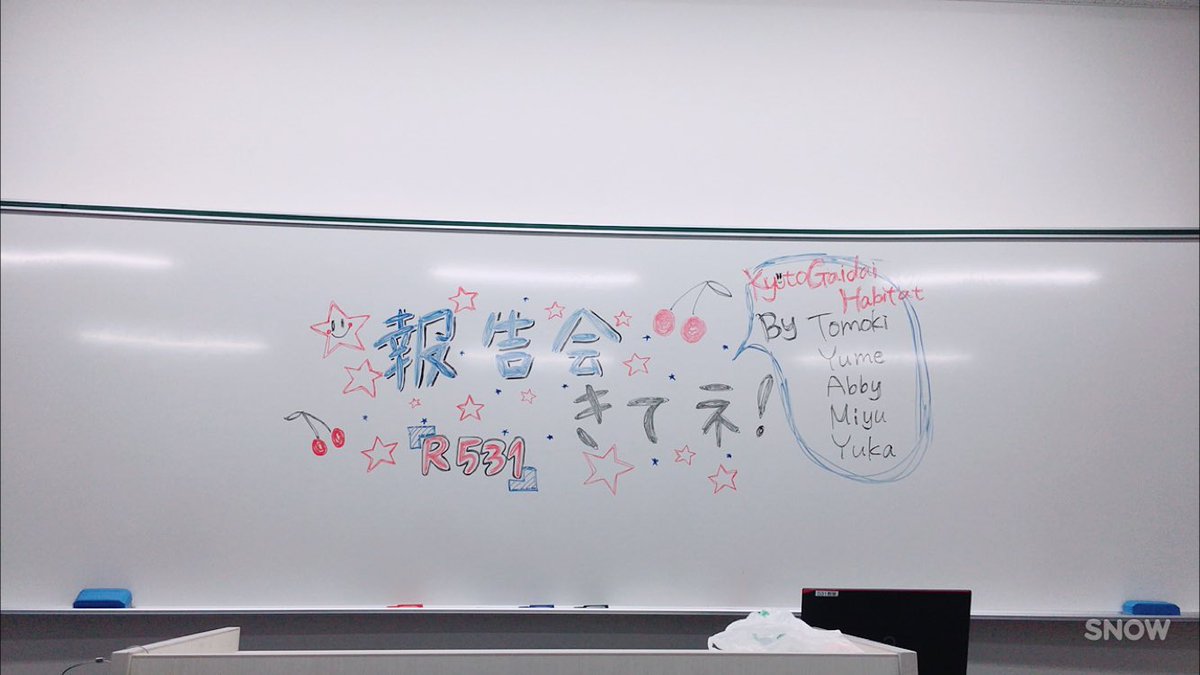 報告会
きてネ!
R531
KyotoGaidai
Habitat
By Tomoki
Yume
Abby
Miyu
Yuka
SNOW